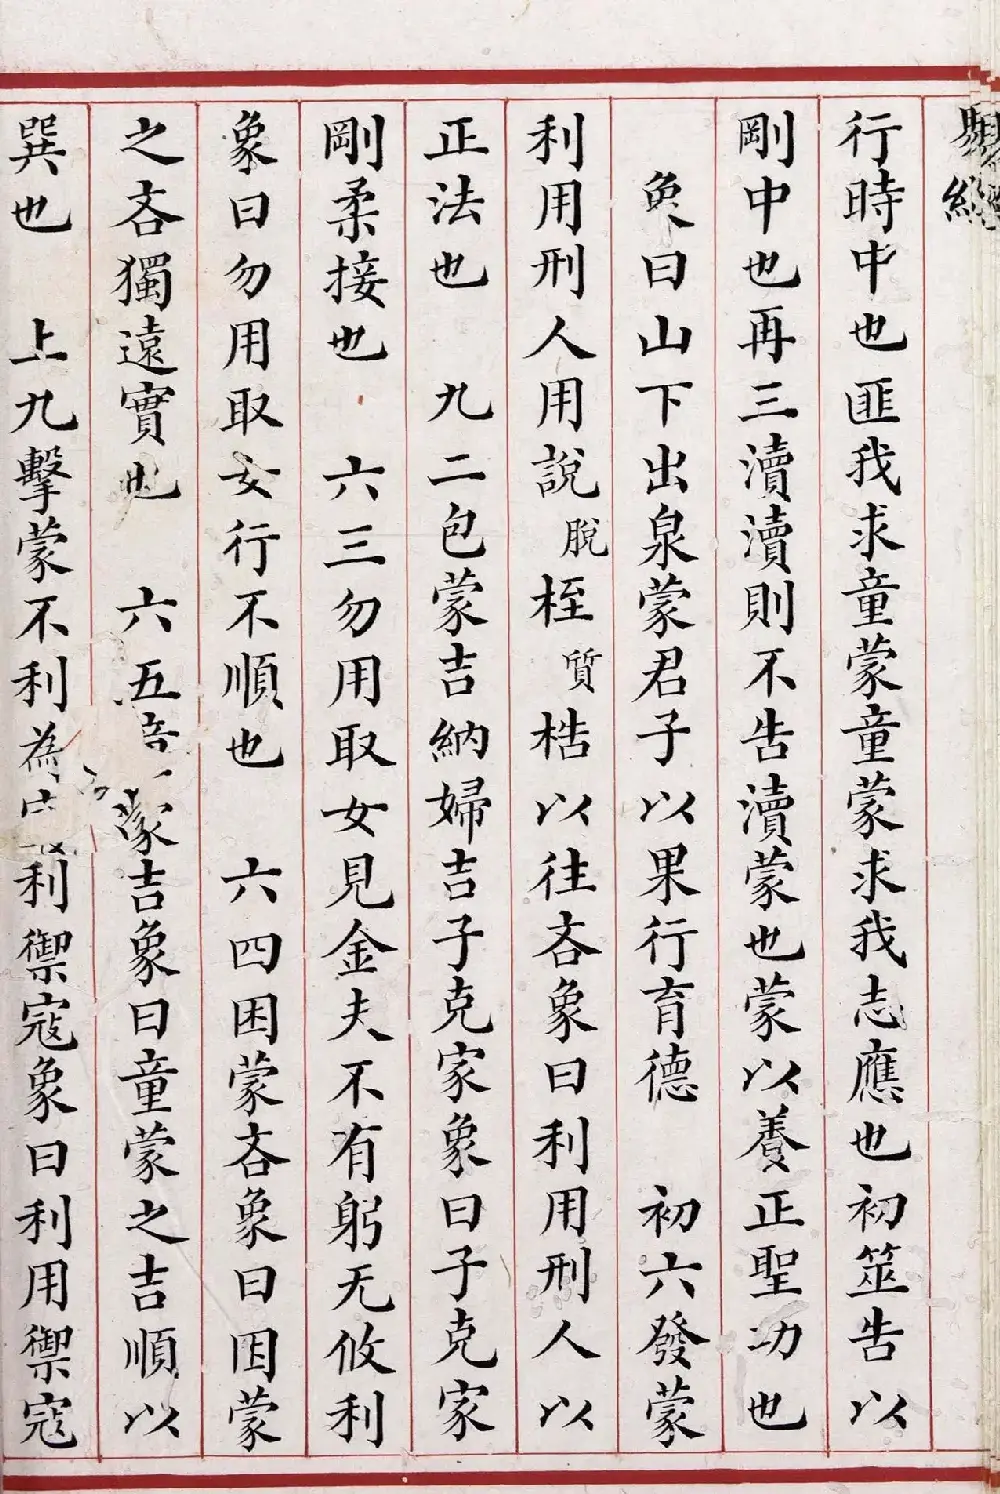 易經
行時中也匪我求童蒙童蒙求我志應也初筮告以
剛中也再三瀆瀆則不告瀆蒙也蒙以養正聖功也
象曰山下出泉蒙君子以果行育德 初六發蒙
利用刑人用說脫桎質梏以往吝象曰利用刑人以
正法也 九二包蒙吉納婦吉子克家象曰子克家
剛柔接也 六三勿用取女見金夫不有躬无攸利
象曰勿用取女行不順也 六四困蒙吝象曰困蒙
之吝獨遠實也 六五童蒙吉象曰童蒙之吉順以
巽也 上九擊蒙不利為寇利禦寇象曰利用禦寇